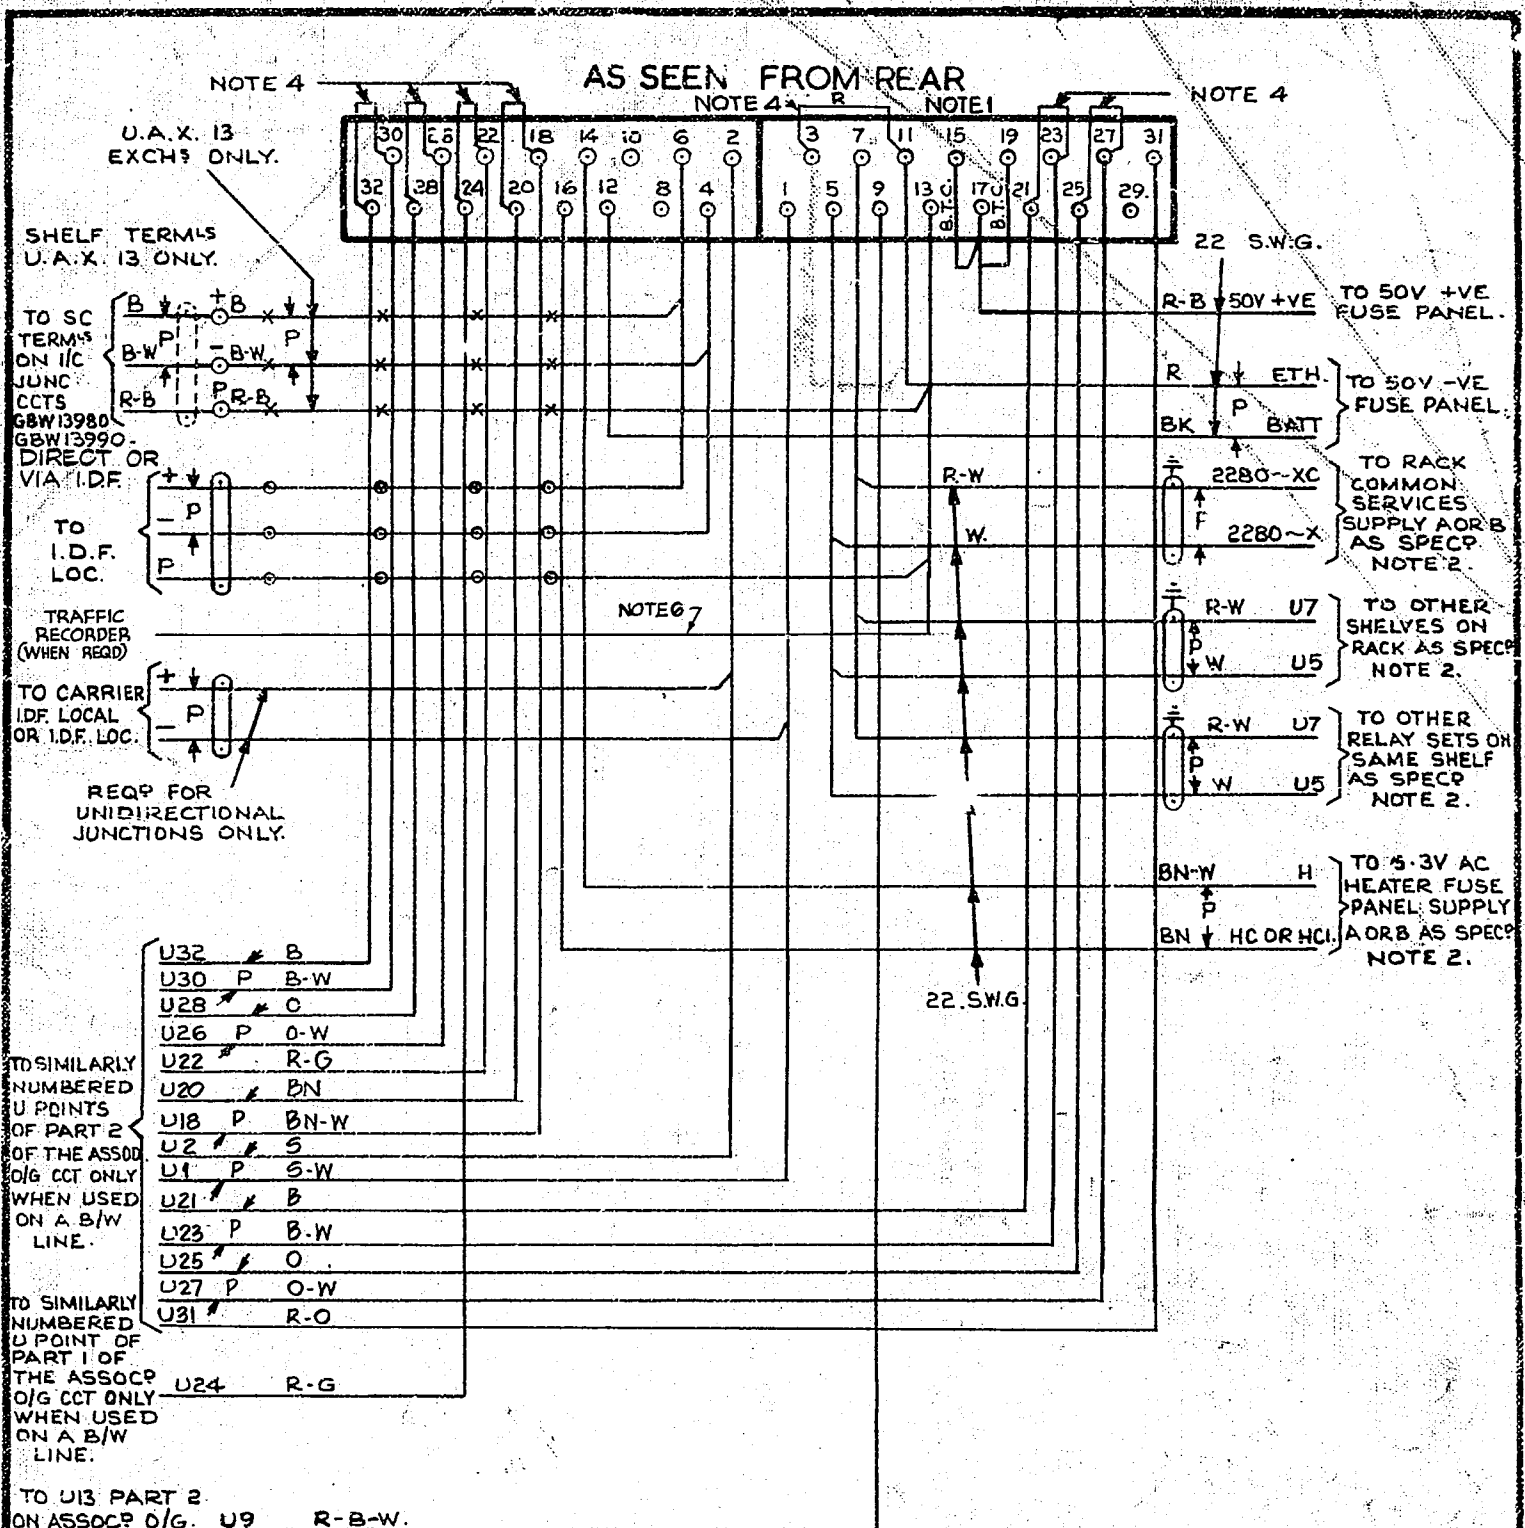 AS SEEN FROM REAR
NOTE 4
NOTE 4
R
NOTE 1
NOTE 4
30 26 22 18 14 10 6 2 3 7 11 15 19 23 27 31
32 28 24 20 16 12 8 4 1 5 9 13 17 21 25 29.
B.T.C.
B.T.C.
U.A.X. 13
EXCHS ONLY.
SHELF TERMLS
U.A.X. 13 ONLY.
TO SC
TERMLS
ON I/C
JUNC
CCTS
GBW13980
GBW13990.
DIRECT OR
VIA I.D.F.
B + B
P P
B-W - B-W
R-B P R-B
TO
I.D.F.
LOC.
+
P
-
P
TRAFFIC
RECORDER
(WHEN REQD)
NOTE 6
TO CARRIER
I.D.F. LOCAL
OR I.D.F. LOC.
+
P
-
REQD FOR
UNIDIRECTIONAL
JUNCTIONS ONLY.
22 S.W.G.
R-B 50V +VE
TO 50V +VE
FUSE PANEL.
R ETH.
P
BK BATT
TO 50V -VE
FUSE PANEL.
R-W
W.
2280~XC
2280~X
TO RACK
COMMON
SERVICES
SUPPLY A OR B
AS SPECD
NOTE 2.
R-W U7
P
W U5
TO OTHER
SHELVES ON
RACK AS SPECD
NOTE 2.
R-W U7
P
W U5
TO OTHER
RELAY SETS ON
SAME SHELF
AS SPECD
NOTE 2.
BN-W H
P
BN HC OR HC1.
TO 5·3V AC
HEATER FUSE
PANEL SUPPLY
A OR B AS SPECD
NOTE 2.
22.S.W.G.
TO SIMILARLY
NUMBERED
U POINTS
OF PART 2
OF THE ASSOD.
O/G CCT ONLY
WHEN USED
ON A B/W
LINE.
U32 B
U30 P B-W
U28 O
U26 P O-W
U22 R-G
U20 BN
U18 P BN-W
U2 S
U1 P S-W
U21 B
U23 P B-W
U25 O
U27 P O-W
U31 R-O
TO SIMILARLY
NUMBERED
U POINT OF
PART 1 OF
THE ASSOCD
O/G CCT ONLY
WHEN USED
ON A B/W
LINE.
U24 R-G
TO U13 PART 2
ON ASSOCD O/G. U9 R-B-W.